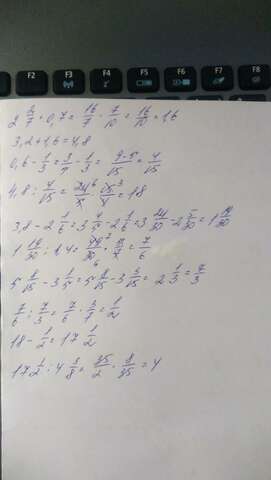 F2 F3 F4 F5 F6 F7 F8
2 2/7 · 0,7 = 16/7 · 7/10 = 16/10 = 1,6
3,2 + 1,6 = 4,8
0,6 - 1/3 = 3/5 - 1/3 = 9-5/15 = 4/15
4,8 : 4/15 = 24/5 · 15/4 = 18
3,8 - 2 1/6 = 3 4/5 - 2 1/6 = 3 24/30 - 2 5/30 = 1 19/30
1 19/30 : 1,4 = 49/30 · 5/7 = 7/6
5 8/15 - 3 1/5 = 5 8/15 - 3 3/15 = 2 1/3 = 7/3
7/6 : 7/3 = 7/6 · 3/7 = 1/2
18 - 1/2 = 17 1/2
17 1/2 : 4 3/8 = 35/2 · 8/35 = 4